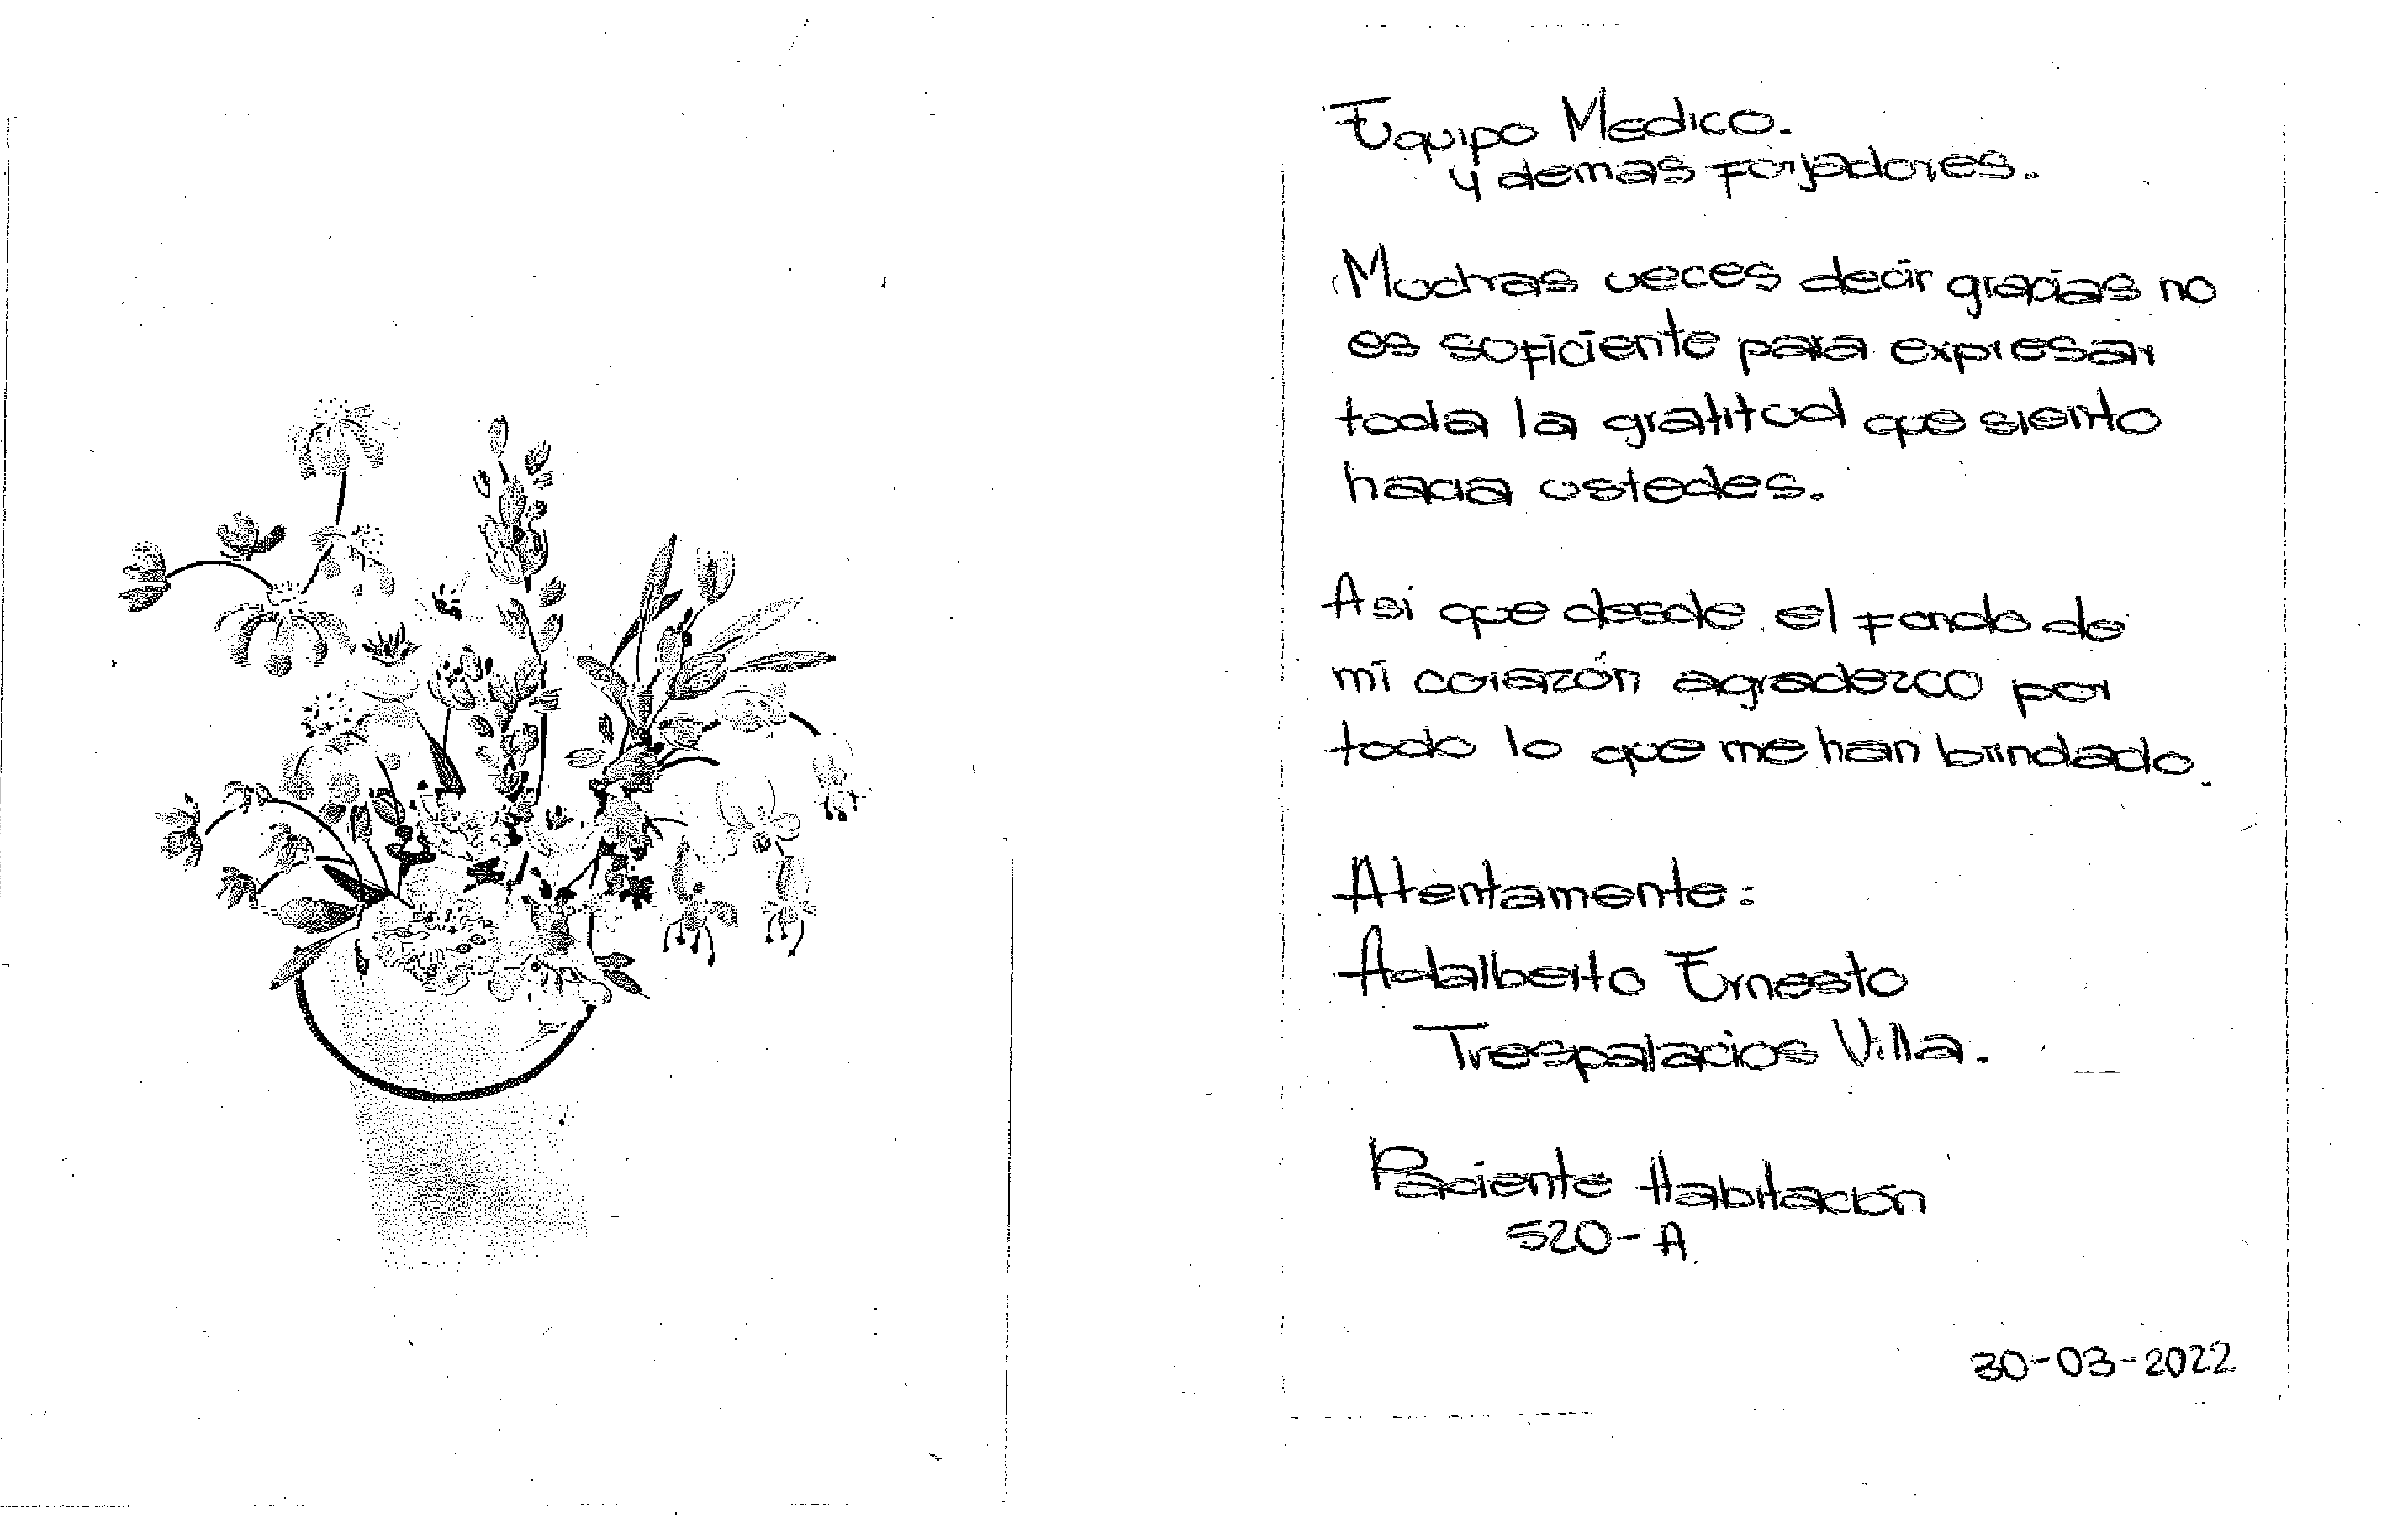 Equipo Medico.
y demas forjadores.
Muchas veces decir gracias no
es suficiente para expresar
toda la gratitud que siento
hacia ustedes.
Asi que desde el fondo de
mi corazón agradezco por
todo lo que me han brindado.
Atentamente:
Adalberto Ernesto
Trespalacios Villa.
Paciente Habitación
520-A.
30-03-2022